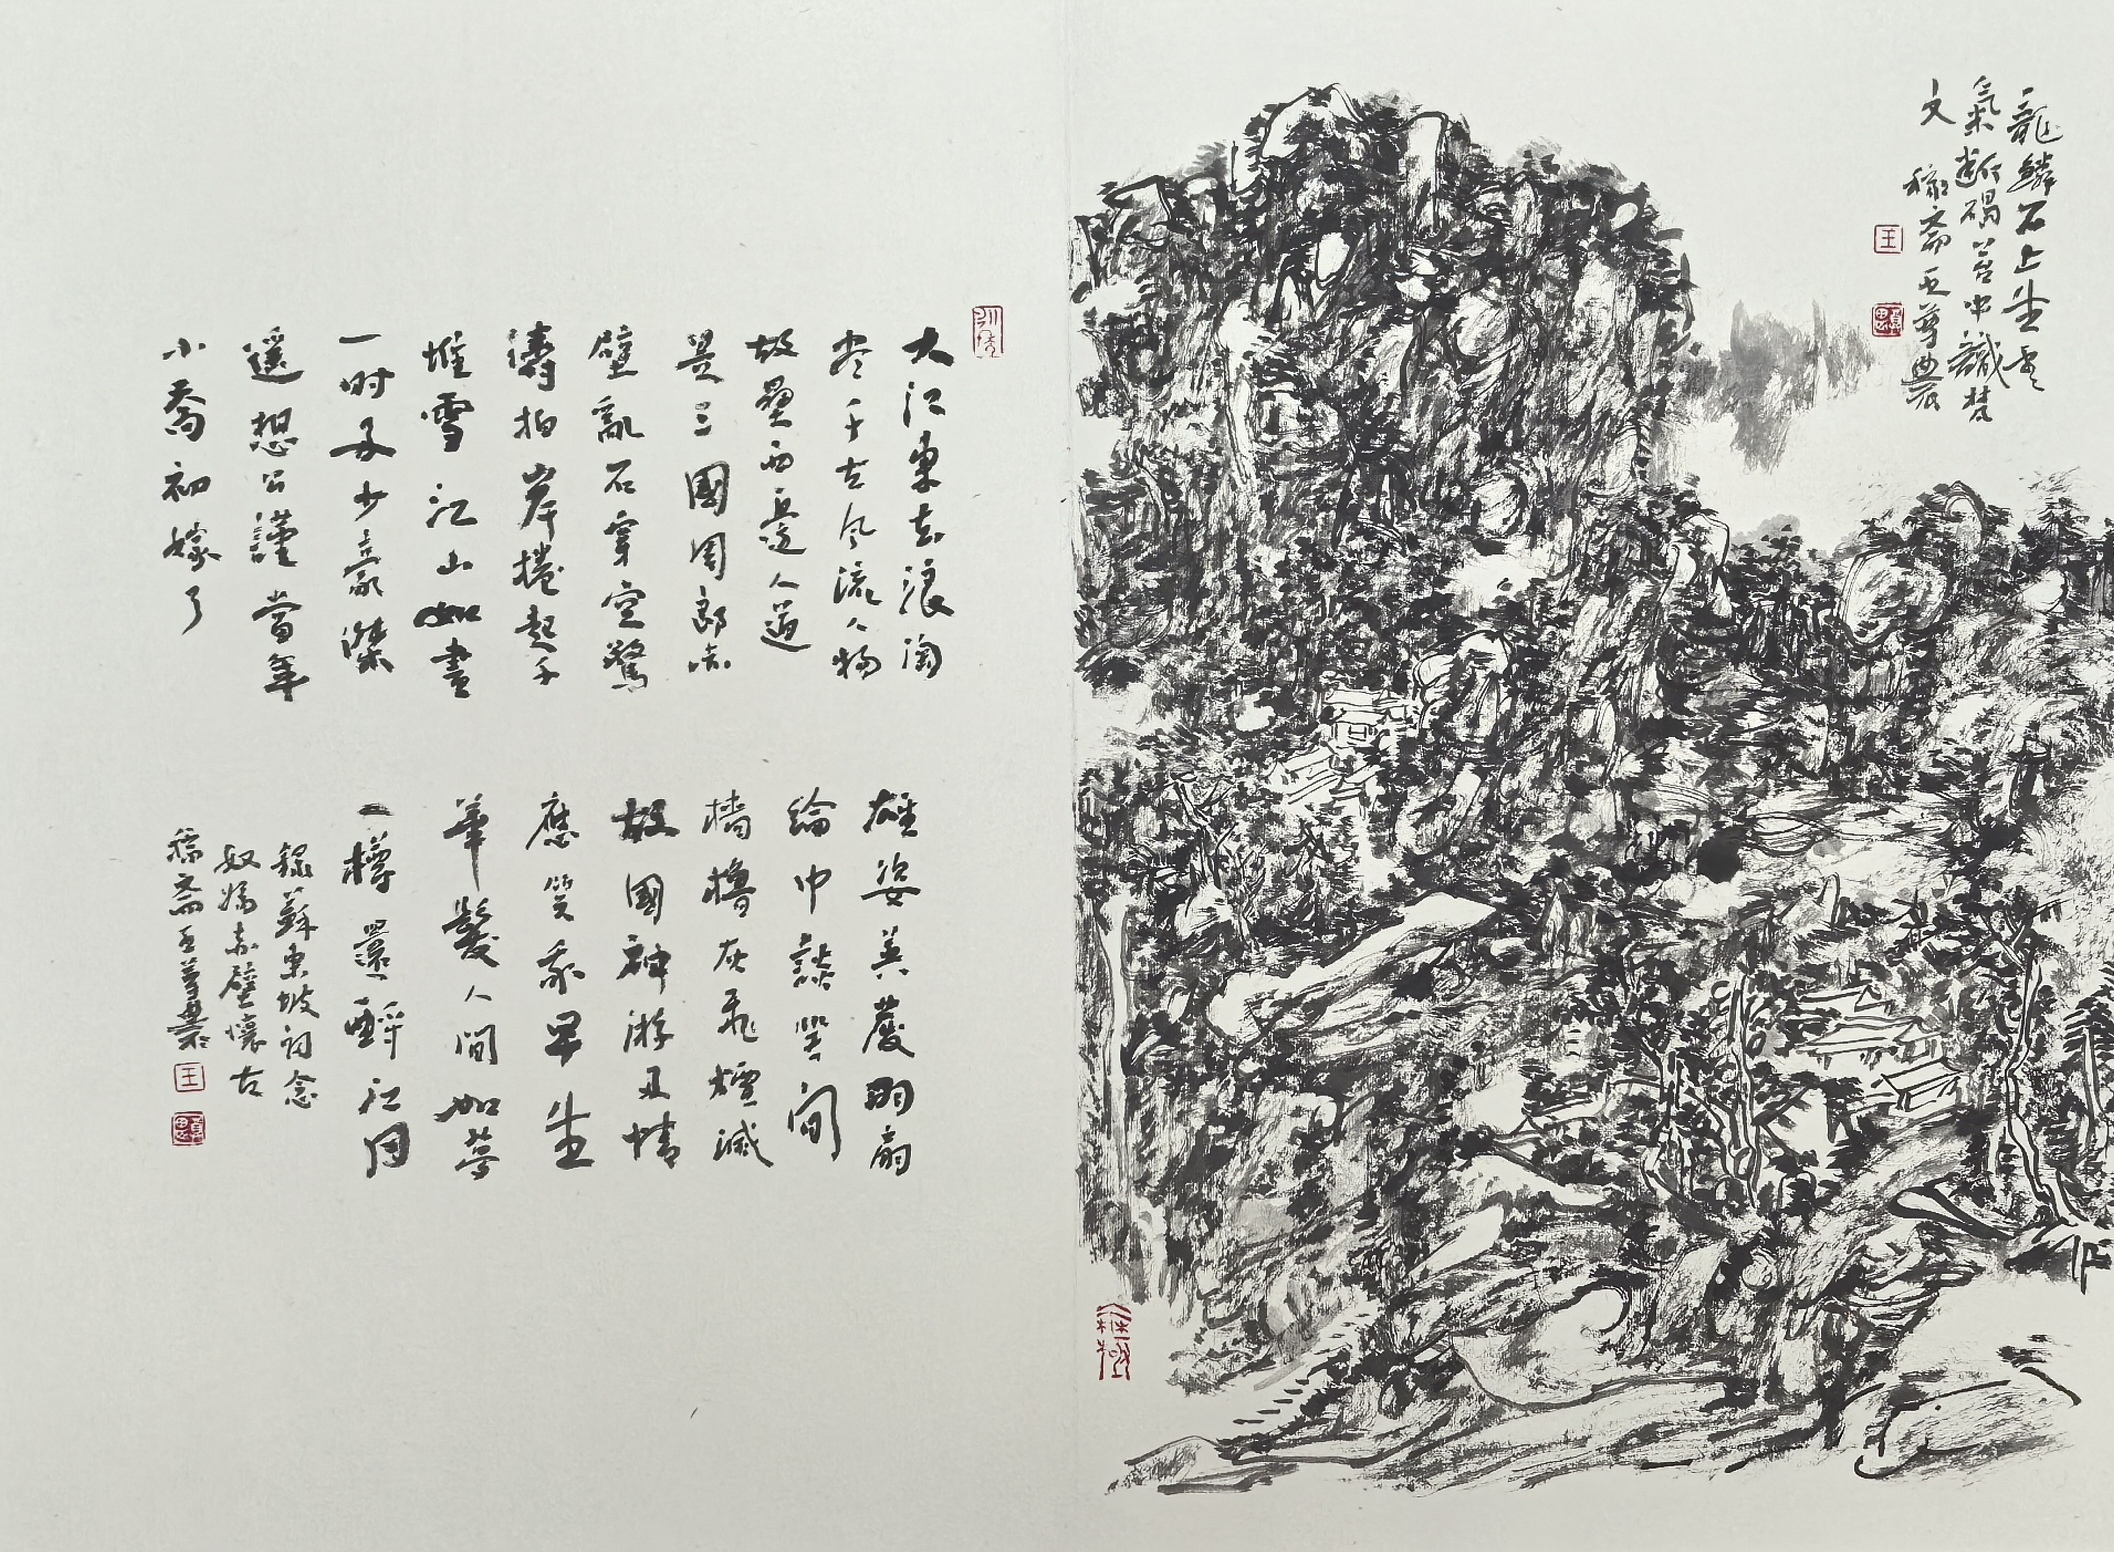 龍鱗石上生雲
氣斷碣苔中識梵
文
稼斋
王
大江東去浪淘
尽千古风流人物
故壘西邊人道
是三國周郎赤
壁亂石穿空驚
濤拍岸捲起千
堆雪江山如畫
一时多少豪傑
遥想公謹當年
小喬初嫁了
雄姿英發羽扇
綸巾談笑间
檣櫓灰飛煙滅
故國神游多情
應笑我早生
華髮人間如夢
一樽還酹江月
録蘇東坡词念
奴嬌赤壁懷古
稼斋
王